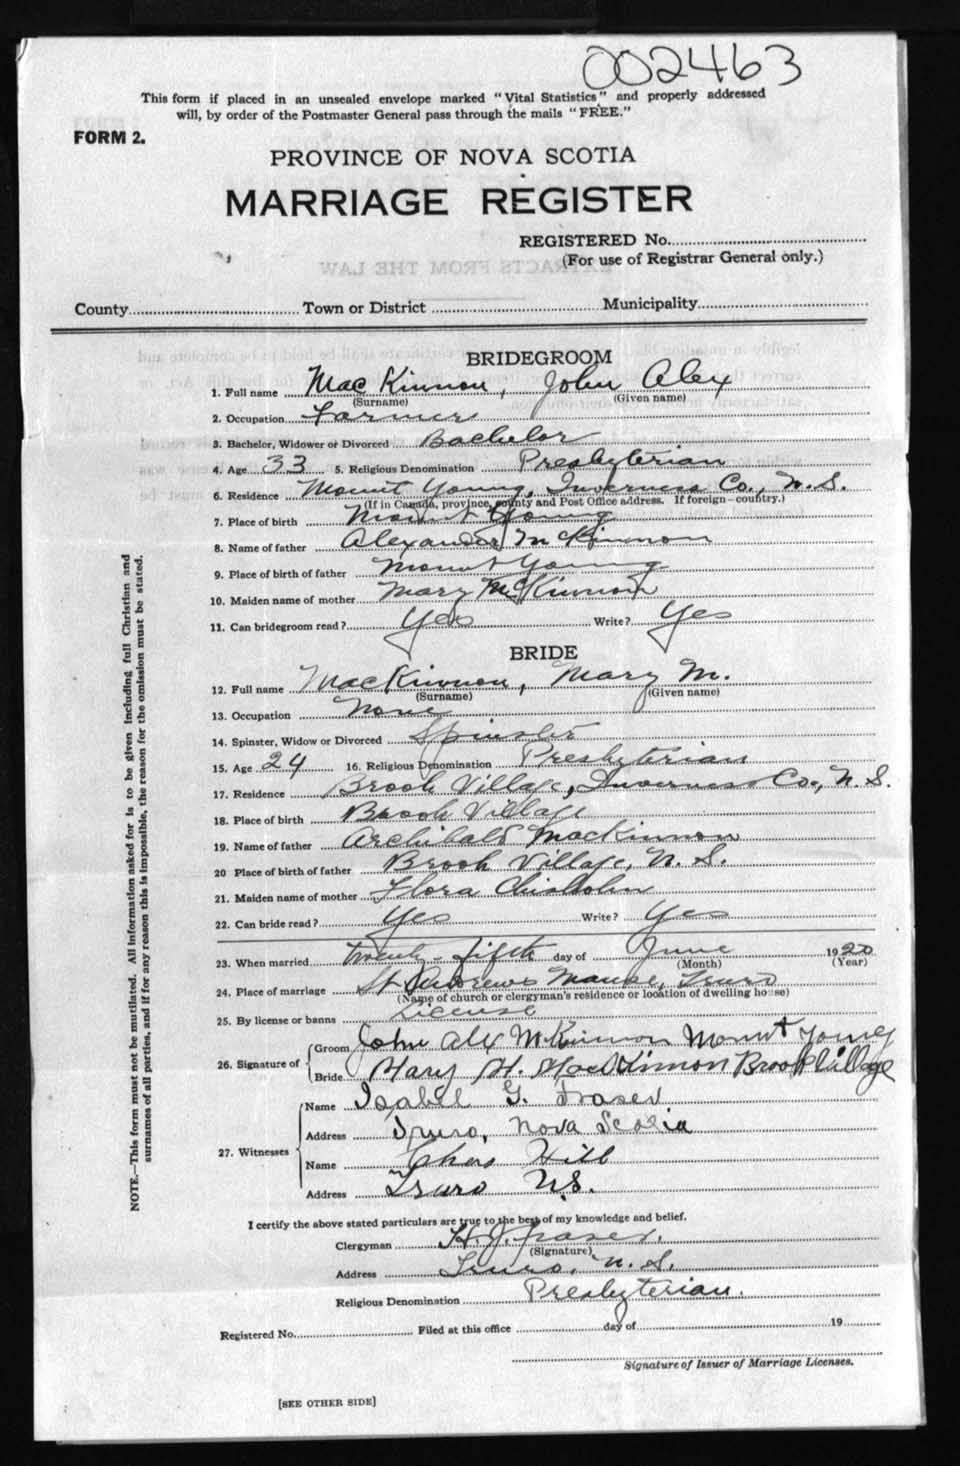 002463
This form if placed in an unsealed envelope marked "Vital Statistics" and properly addressed
will, by order of the Postmaster General pass through the mails "FREE."
FORM 2.
PROVINCE OF NOVA SCOTIA
MARRIAGE REGISTER
REGISTERED No.
(For use of Registrar General only.)
EXTRACTS FROM THE LAW
County Town or District Municipality
BRIDEGROOM
1. Full name MacKinnon, John Alex
(Surname) (Given name)
2. Occupation Farmer
3. Bachelor, Widower or Divorced Bachelor
4. Age 33 5. Religious Denomination Presbyterian
6. Residence Mount Young, Inverness Co., N.S.
(If in Canada, province, county and Post Office address. If foreign—country.)
7. Place of birth Mount Young
8. Name of father Alexander McKinnon
9. Place of birth of father Mount Young
10. Maiden name of mother Mary McKinnon
11. Can bridegroom read? Yes Write? Yes
BRIDE
12. Full name MacKinnon, Mary M.
(Surname) (Given name)
13. Occupation None
14. Spinster, Widow or Divorced Spinster
15. Age 24 16. Religious Denomination Presbyterian
17. Residence Brook Village, Inverness Co., N.S.
18. Place of birth Brook Village
19. Name of father Archibald MacKinnon
20 Place of birth of father Brook Village, N. S.
21. Maiden name of mother Flora Chisholm
22. Can bride read? Yes Write? Yes
23. When married twenty-fifth day of June 1920
(Month) (Year)
24. Place of marriage St Andrews Manse, Truro
(Name of church or clergyman's residence or location of dwelling house)
25. By license or banns License
26. Signature of Groom John Alex McKinnon Mount Young
Bride Mary H. MacKinnon Brook Village
27. Witnesses
Name Isabel G. Fraser
Address Truro, Nova Scotia
Name Chas Hill
Address Truro N.S.
I certify the above stated particulars are true to the best of my knowledge and belief.
Clergyman H. J. Fraser.
(Signature)
Address Truro, N. S.
Religious Denomination Presbyterian.
Registered No. Filed at this office day of 19
Signature of Issuer of Marriage Licenses.
[SEE OTHER SIDE]
NOTE.—This form must not be mutilated. All information asked for is to be given including full Christian and
surnames of all parties, and if for any reason this is impossible, the reason for the omission must be stated.